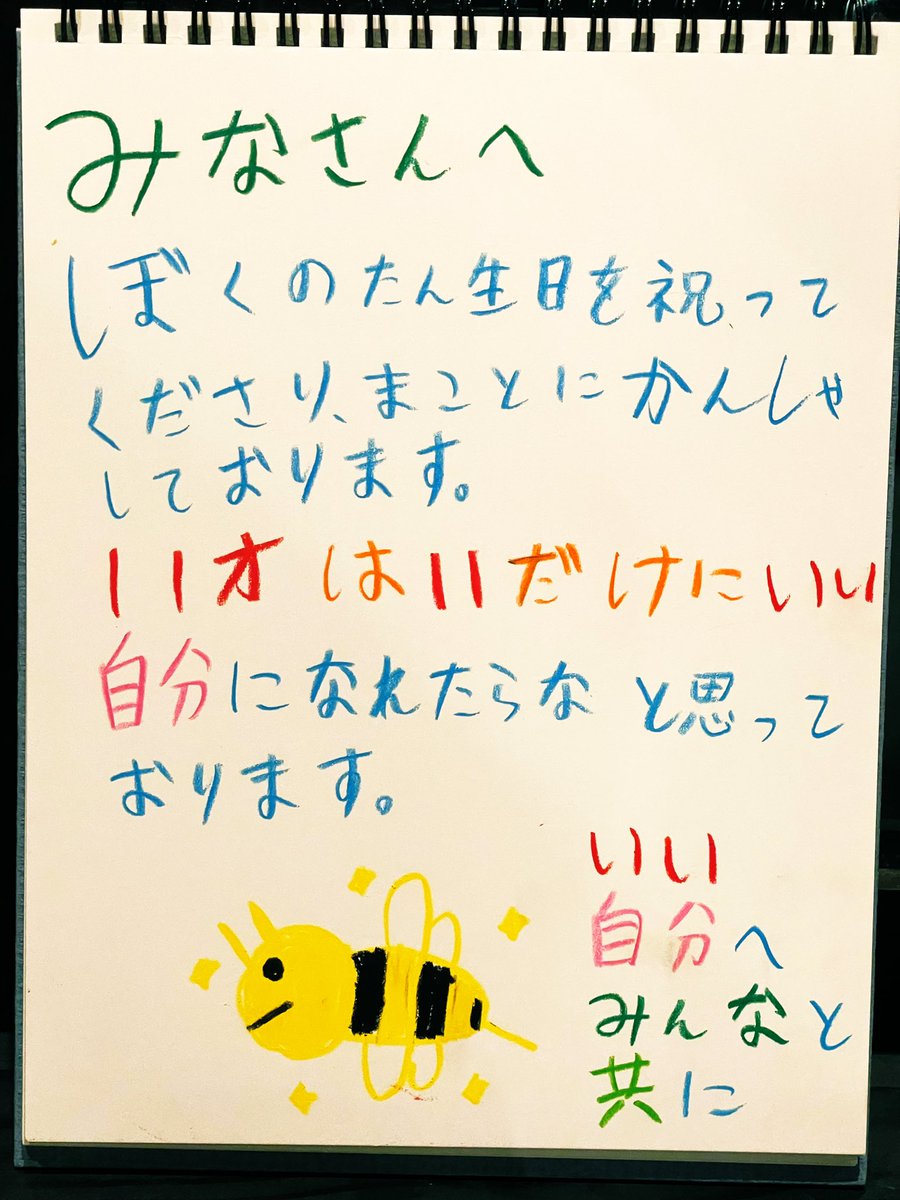 みなさんへ
ぼくのたん生日を祝って
くださり、まことにかんしゃ
しております。
11才は11だけにいい
自分になれたらなと思って
おります。
いい
自分へ
みんなと
共に